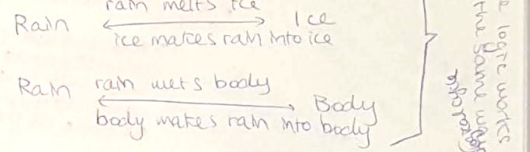 rain melts ice
Rain Ice
ice makes rain into ice
Rain rain wets body
Body
body makes rain into body
logic works
the same way